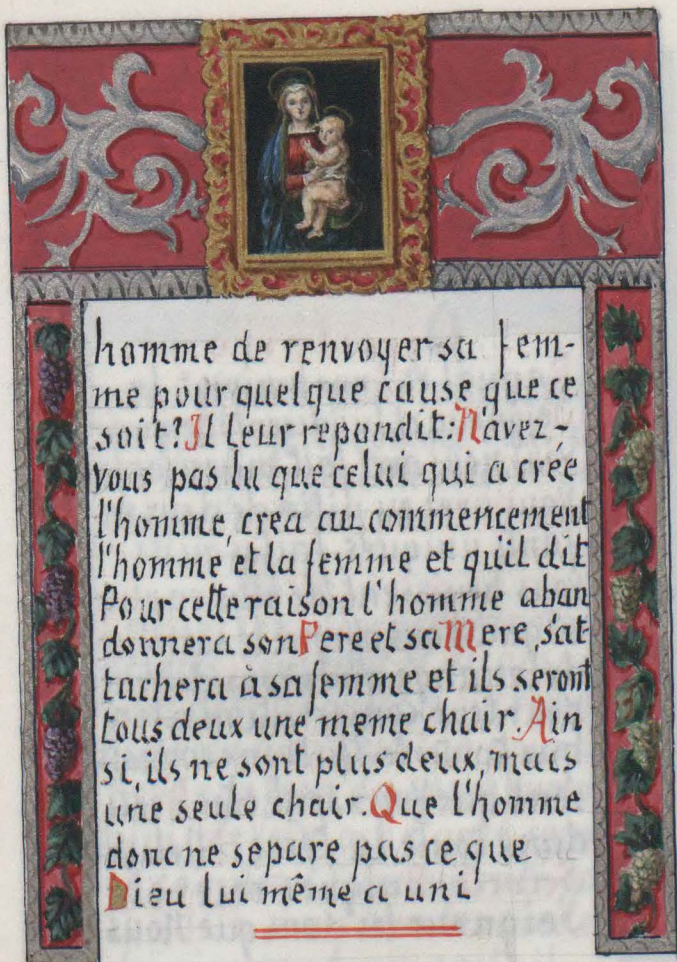 homme de renvoyer sa fem-
me pour quelque cause que ce
soit? Il leur repondit: N'avez-
vous pas lu que celui qui a crée
l'homme, crea au commencement
l'homme et la femme et qu'il dit
Pour cette raison l'homme aban
donnera son Pere et sa Mere, s'at
tachera à sa femme et ils seront
tous deux une meme chair. Ain
si, ils ne sont plus deux, mais
une seule chair. Que l'homme
donc ne separe pas ce que
Dieu lui même a uni